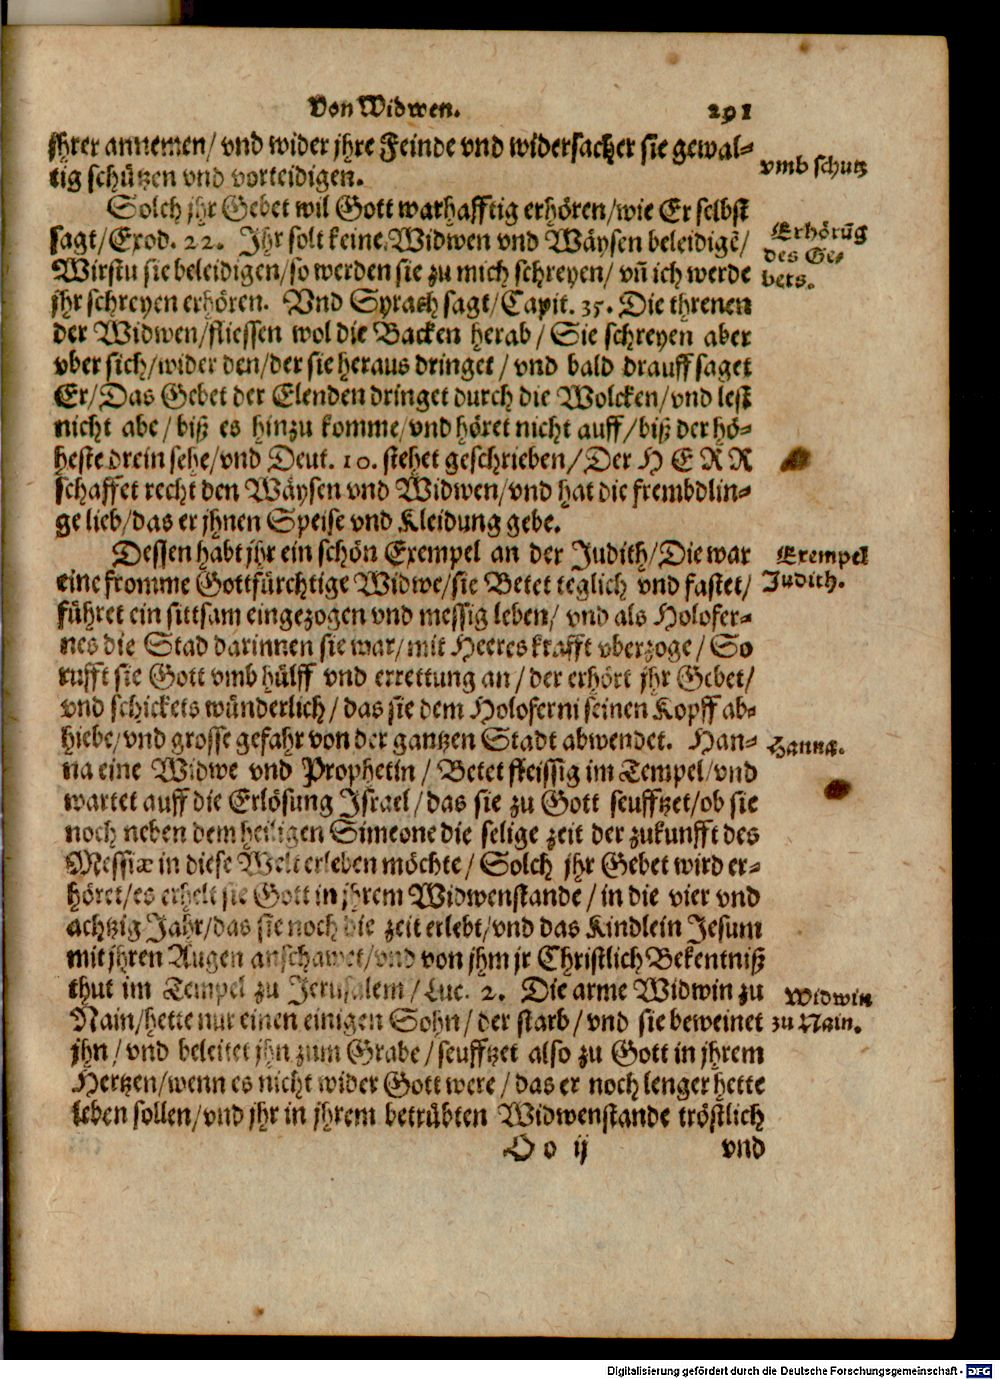 Von Widwen. 291
jhrer annemen/ vnd wider jhre Feinde vnd widersacher sie gewal-
tig schützen vnd vorteidigen.
vmb schutz
Solch jhr Gebet wil Gott warhafftig erhören/wie Er selbst
sagt/Exod. 22. Jhr solt keine Widwen vnd Wäysen beleidigē/
Wirstu sie beleidigen/so werden sie zu mich schreyen/ vñ ich werde
jhr schreyen erhören. Vnd Syrach sagt/Capit. 35. Die threnen
der Widwen/fliessen wol die Backen herab/ Sie schreyen aber
vber sich/wider den/der sie heraus dringet/ vnd bald drauff saget
Er/Das Gebet der Elenden dringet durch die Wolcken/vnd lest
nicht abe/ biß es hinzu komme/vnd höret nicht auff/biß der hö-
heste drein sehe/vnd Deut. 10. stehet geschrieben/Der HERR
schaffet recht den Wäysen vnd Widwen/vnd hat die frembdlin-
ge lieb/das er jhnen Speise vnd Kleidung gebe.
Erhörūg
des Ge-
bets.
Dessen habt jhr ein schön Exempel an der Judith/Die war
eine fromme Gottfürchtige Widwe/sie Betet teglich vnd fastet/
führet ein sittsam eingezogen vnd messig leben/ vnd als Holofer-
nes die Stad darinnen sie war/ mit Heeres krafft vberzoge/ So
rufft sie Gott vmb hülff vnd errettung an/ der erhört jhr Gebet/
vnd schickets wünderlich/ das sie dem Holoferni seinen Kopff ab-
hiebe/vnd grosse gefahr von der gantzen Stadt abwendet. Han-
na eine Widwe vnd Prophetin/ Betet fleissig im Tempel/vnd
wartet auff die Erlösung Israel/das sie zu Gott seufftzet/ob sie
noch neben dem heiligen Simeone die selige zeit der zukunfft des
Messiæ in diese Welt erleben möchte/ Solch jhr Gebet wird er-
höret/es erhelt sie Gott in jhrem Widwenstande/ in die vier vnd
achtzig Jahr/das sie noch die zeit erlebt/vnd das Kindlein Jesum
mit jhren Augen anschawet/vnd von jhm jr Christlich Bekentniß
thut im Tempel zu Jerusalem/ Luc. 2. Die arme Widwin zu
Nain/hette nur einen einigen Sohn/ der starb/ vnd sie beweinet
jhn/ vnd beleitet jhn zum Grabe/seufftzet also zu Gott in jhrem
Hertzen/wenn es nicht wider Gott were/ das er noch lenger hette
leben sollen/vnd jhr in jhrem betrübten Widwenstande tröstlich
Exempel
Judith.
Hanna.
Widwin
zu Nain.
O o ij vnd
Digitalisierung gefördert durch die Deutsche Forschungsgemeinschaft - DFG